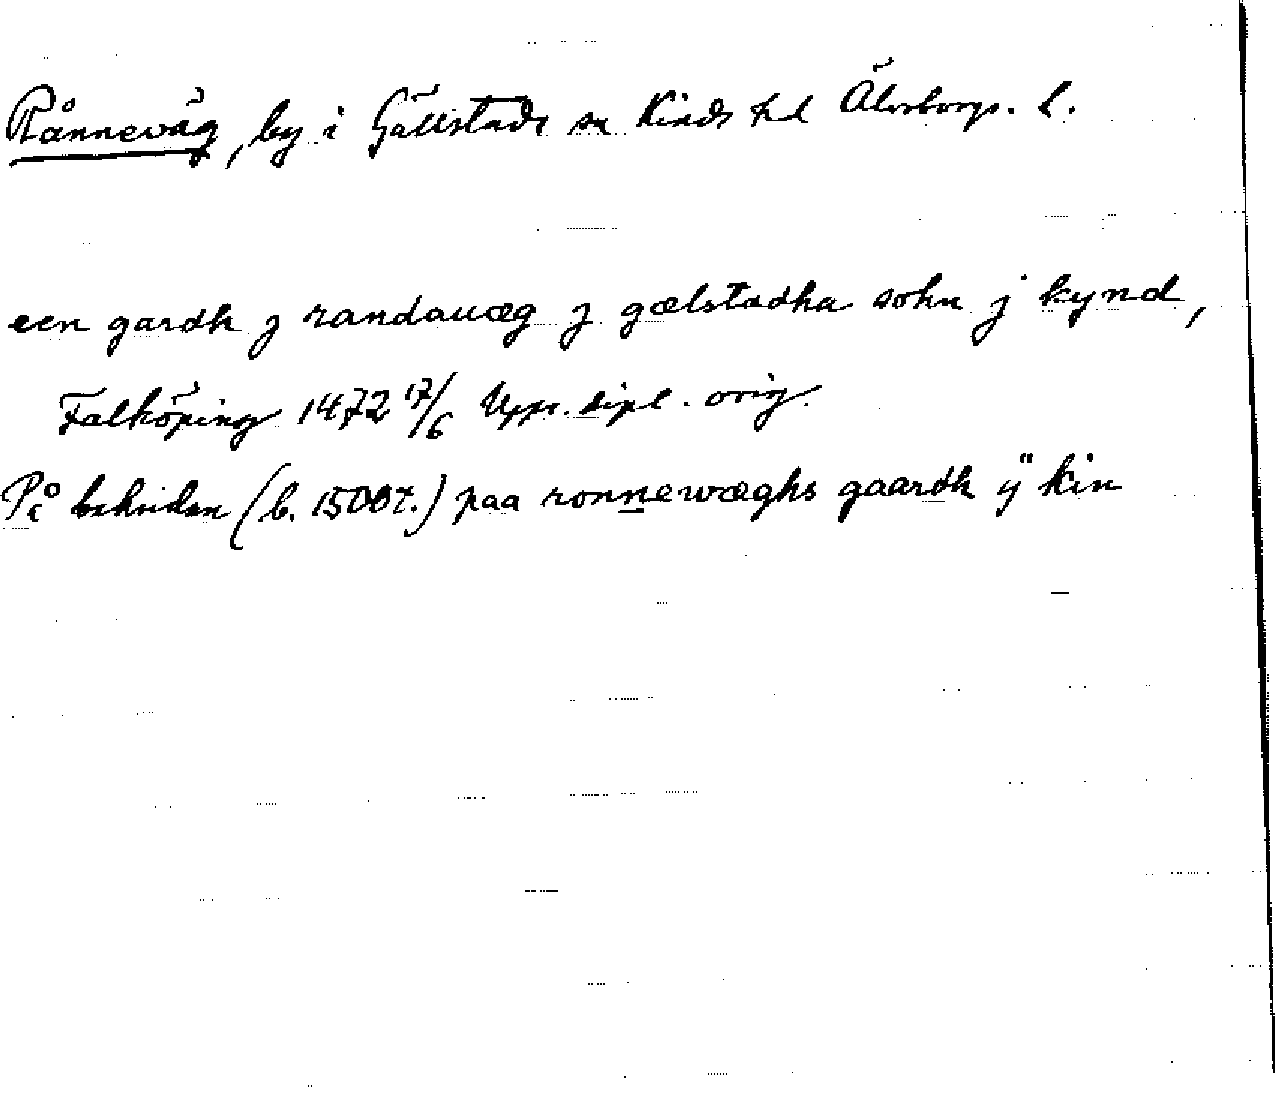 Rånneväg, by i Gällstads sn Kinds hd Älvsborgs. l.
een gardh j randauæg j gælstadha sokn j kynd,
Falköping 1472 17/6 Upps. dipl. orig.
På baksidan (b. 1500t.) paa ronnewæghs gaardh ÿ kin